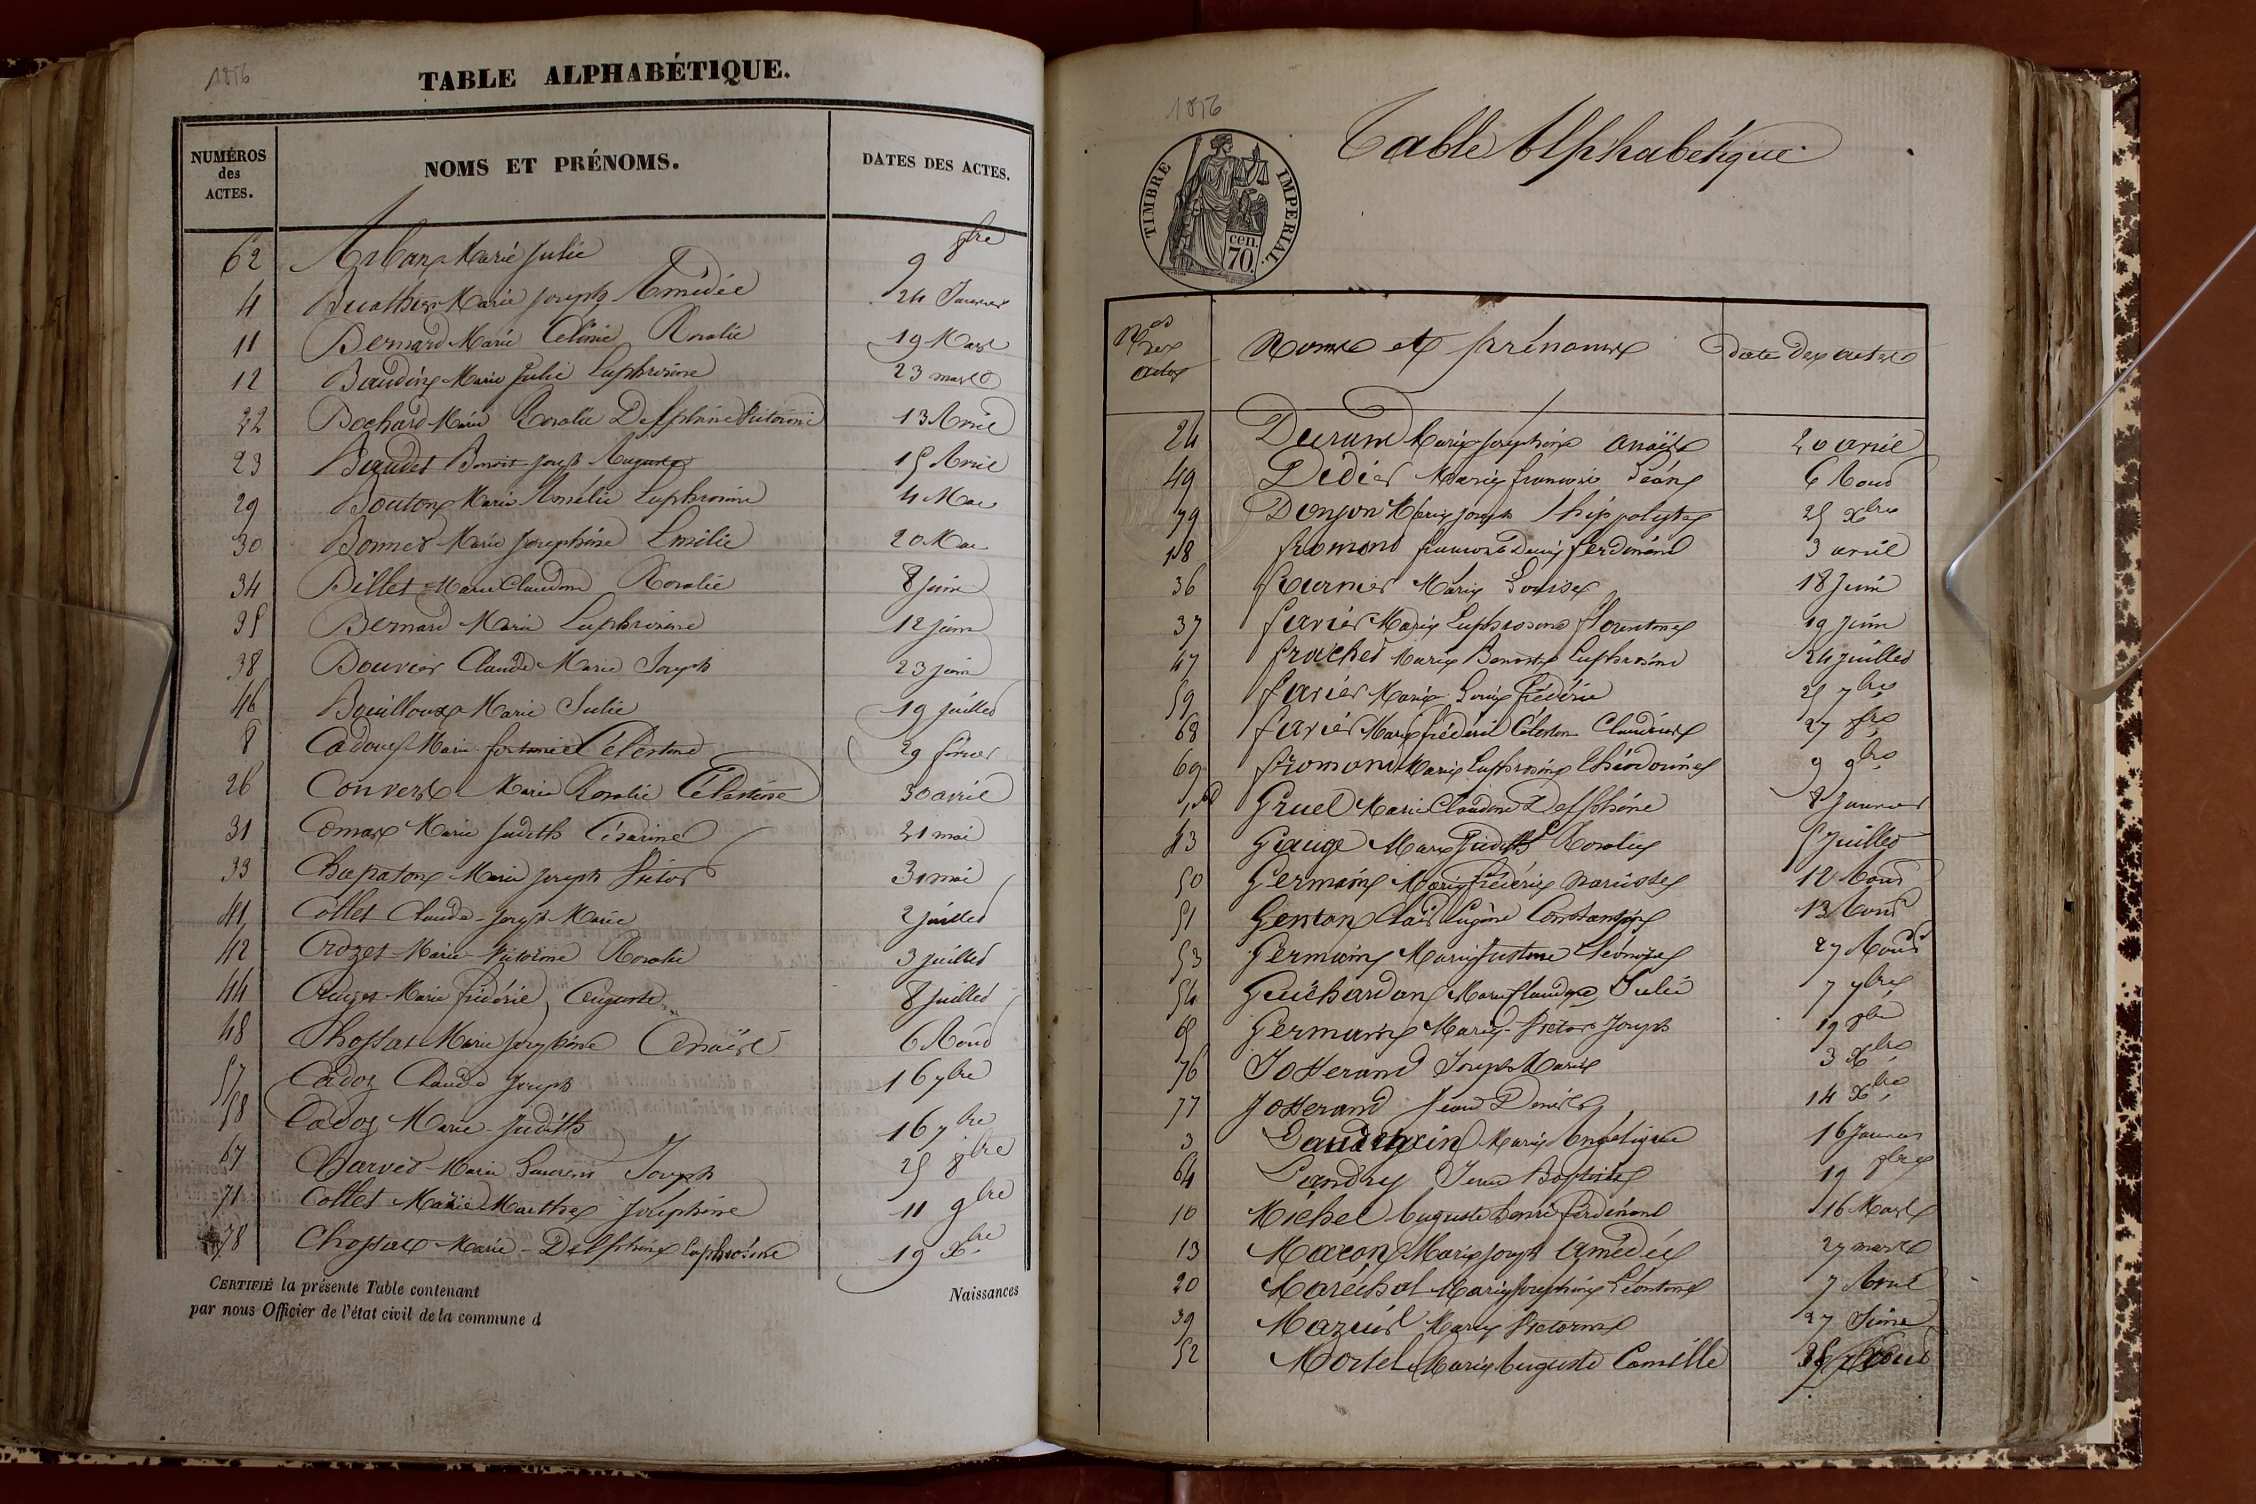 1856
TABLE ALPHABÉTIQUE.
NUMÉROS des ACTES.
NOMS ET PRÉNOMS.
DATES DES ACTES.
62 Arban Marie Julie 9 8bre
4 Marie Joseph Amédée 24 Janvier
11 Bernard Marie Célinie Rosalie 19 Mars
12 Baudin Marie Julie Euphrosine 23 mars
22 Bochard Marie Rosalie Delphine Victorine 13 Avril
23 Baudet Benoit Joseph Auguste 15 Avril
29 Bouton Marie Amélie Euphrosine 4 Mai
30 Bonnet Marie Josephine Emilie 20 Mai
34 Billet Marie Claudine Rosalie 8 juin
35 Bernard Marie Euphrosine 12 juin
38 Bouvier Claude Marie Joseph 23 juin
46 Bouilloux Marie Julie 19 juillet
8 Cadoux Marie Célestine 29 février
26 Convers Marie Rosalie Célestine 30 avril
31 Comas Marie Judith Césarine 21 mai
33 Chapaton Marie Joseph Victor 31 mai
41 Collet Claude-Joseph-Marie 2 juillet
42 Crozet Marie-Victorine Rosalie 3 juillet
44 Marie Frédéric Auguste 8 juillet
48 Marie Josephine Anaïse 6 Aoud
57 Cadoz Claude Joseph 16 7bre
58 Cadoz Marie-Judith 16 7bre
67 Marie Laurent Joseph 25 8bre
71 Collet Marie Marthe Joséphine 11 9bre
78 Chossat Marie-Delphine Euphrosine 19 Xbre
CERTIFIÉ la présente Table contenant Naissances
par nous Officier de l'état civil de la commune d
1856
TIMBRE IMPERIAL.
cen.
70.
Table Alphabétique
Nos des actes
Noms et prénoms
Date des actes
24 Durand Marie Josephine Anaïse 20 avril
49 Didier Marie 6 Aoud
79 Donjon Marie Joseph hippolyte 25 Xbre
18 fromont Denis ferdinand 3 avril
36 fournier Marie Louise 18 Juin
37 favier Marie Euphrosine florentine 19 Juin
47 frachet Marie Benoite Euphrosine 24 juillet
59 favier Marie Louis frédéric 25 7bre
68 favier Marie frédéric Célestin Claudius 27 8bre
69 fromont Marie Euphrosine théodorine 9 9bre
1er Gruel Marie Claudine Delphine 8 Janvier
43 Gauge Marie Judith Rosalie 5 Juillet
50 Germain Marie frédéric Narcisse 12 Aoud
51 Genton Clair Eugène Constantin 13 Aoud
53 Germain Marie Justine Léonise 27 Aoud
54 Guichardan Marie Claudine Julie 7 7bre
65 Germain Marie-Victor Joseph 19 8bre
76 Josserand Joseph Marie 3 Xbre
77 Josserand 14 Xbre
3 Marie Angélique 16 Janvier
64 Landry Jean Baptiste 19 8bre
10 Michel Auguste henri ferdinand 16 Mars
13 Macon Marie Joseph Amédée 27 mars
20 Maréchal Marie Josephine Léontine 7 Avril
39 Mazuir Marie Victorine 27 Juin
52 Mortel Marie Auguste Camille